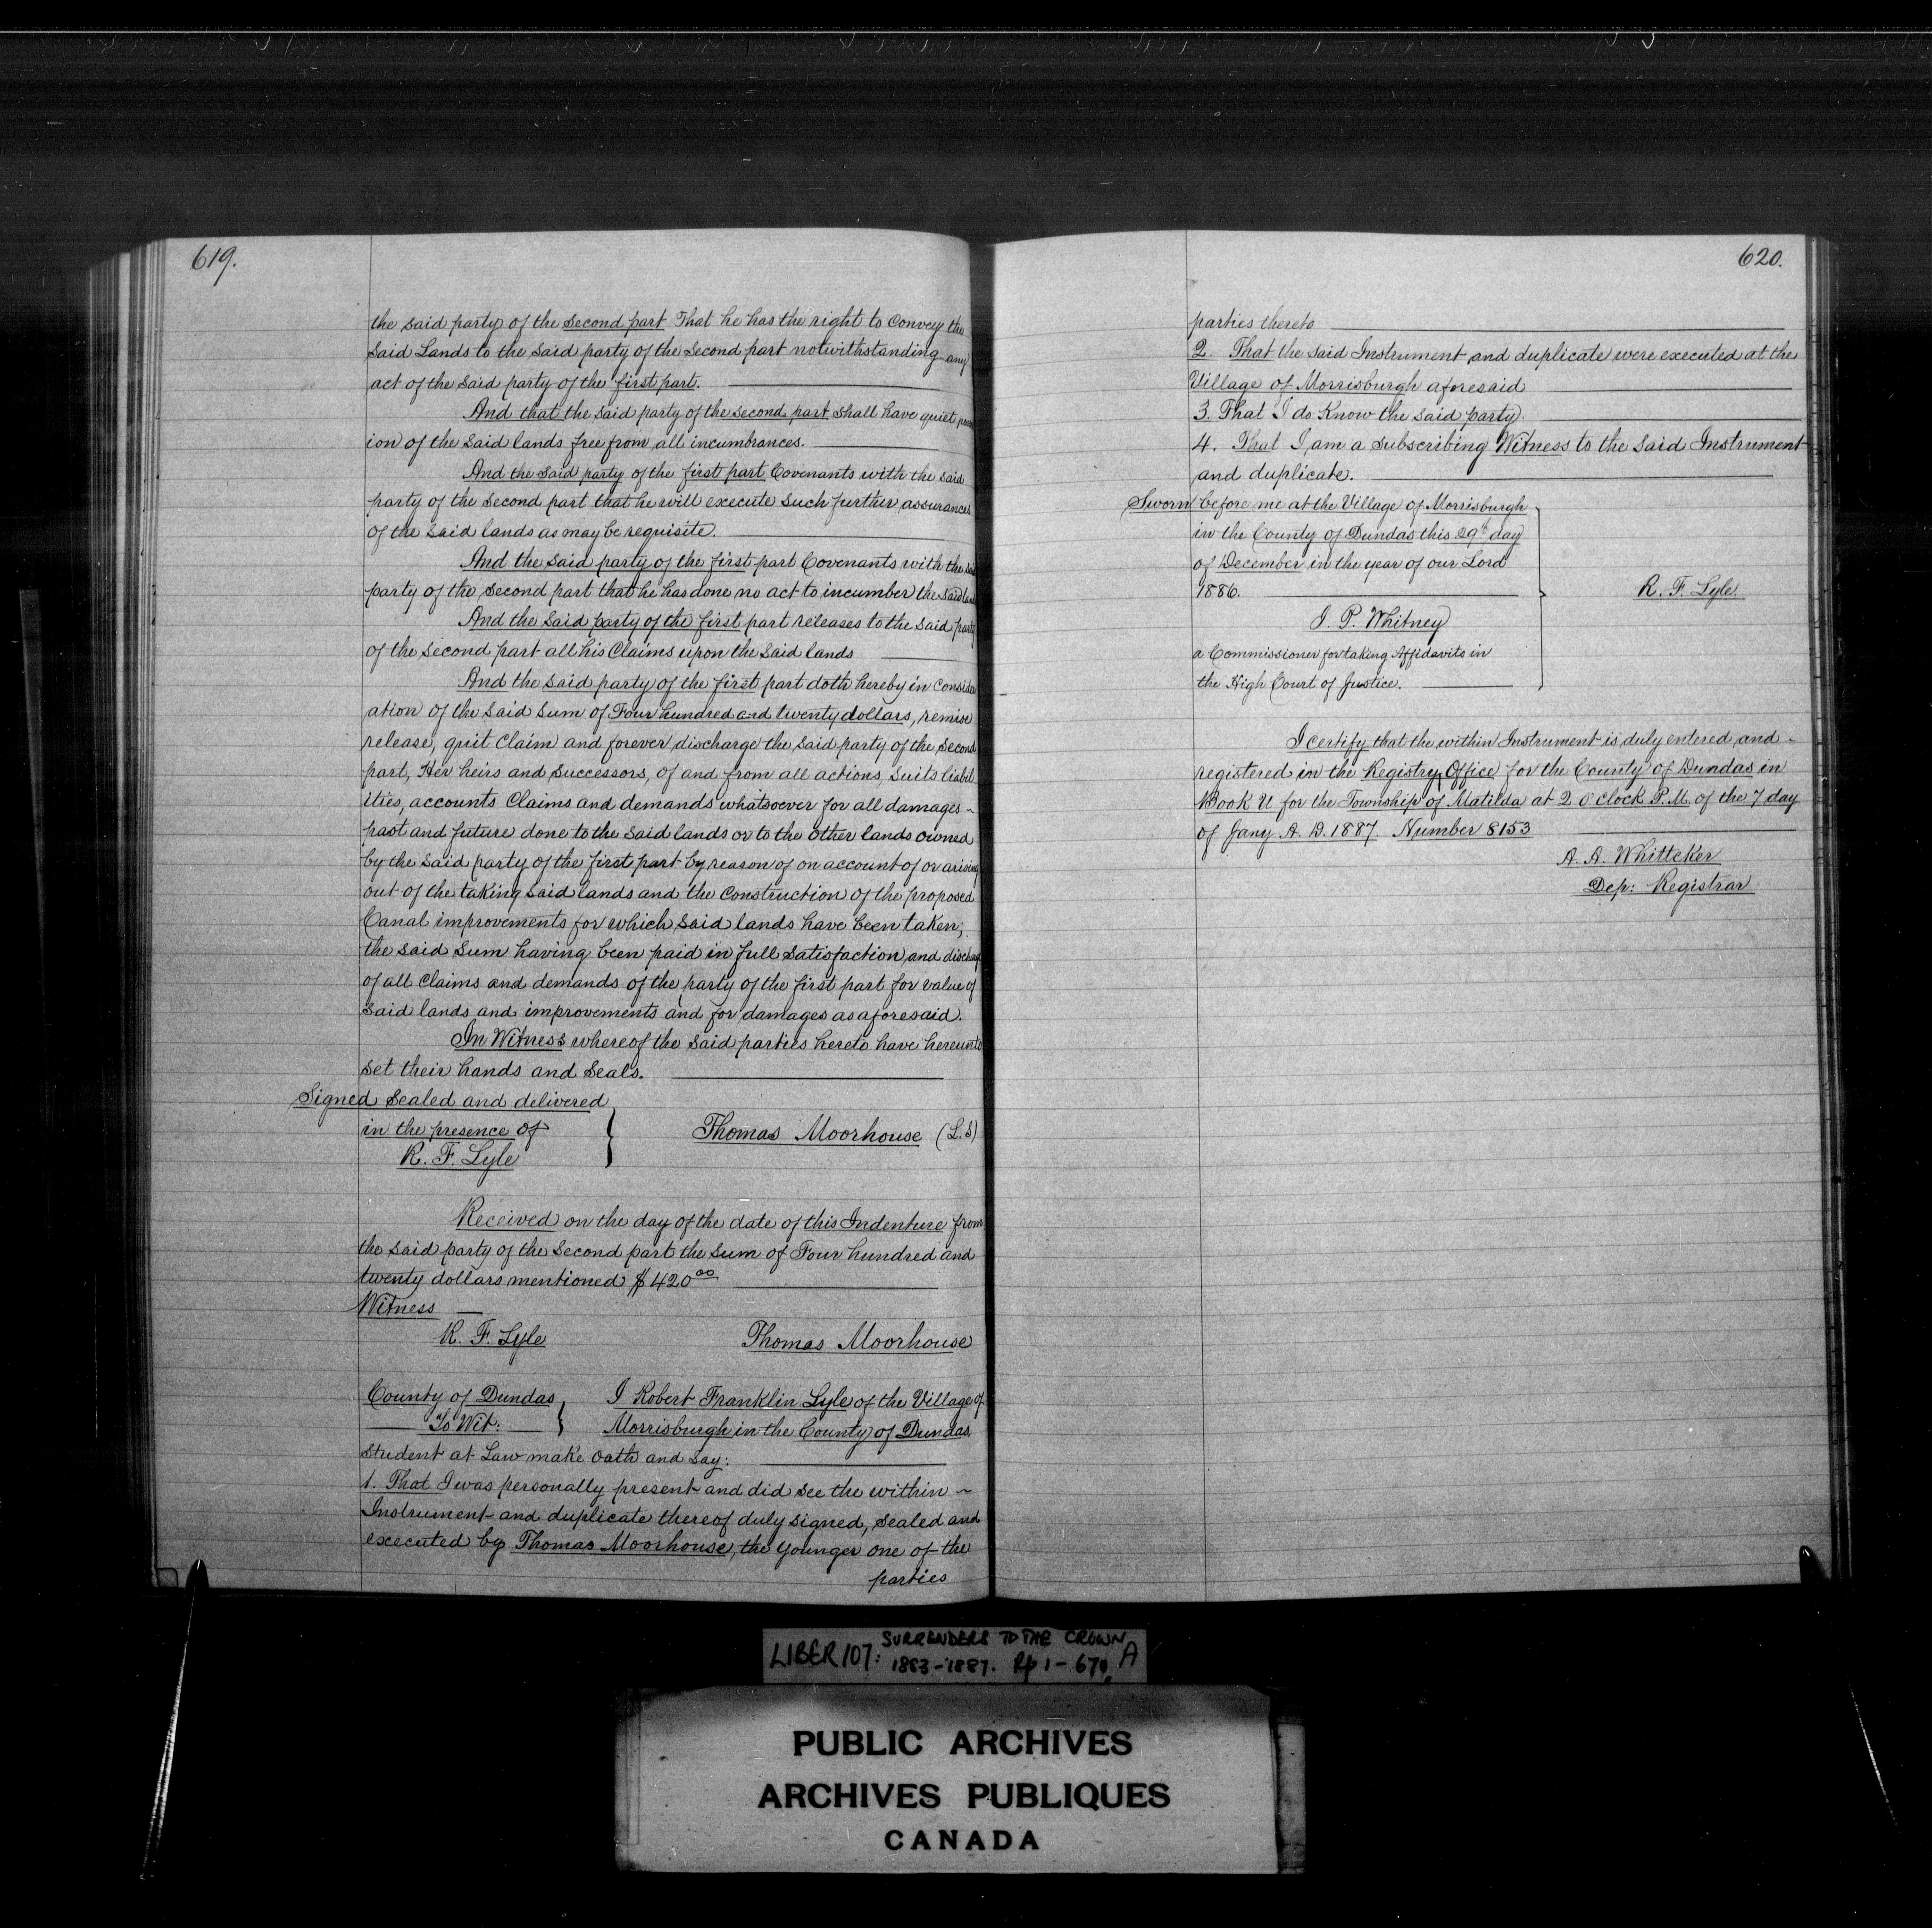 619.
the said party of the second part That he has the right to Convey the
said Lands to the said party of the second part notwithstanding any
act of the said party of the first part.
And that the said party of the second part shall have quiet
ion of the said lands free from all incumbrances.
And the said party of the first part Covenants with the said
party of the second part that he will execute such further assurances
of the said lands as may be requisite.
And the said party of the first part Covenants with the said
party of the second part that he has done no act to incumber the said
And the said party of the first part releases to the said party
of the second part all his Claims upon the said lands
And the said party of the first part doth hereby in Consider
ation of the said sum of Four hundred and twenty dollars, remise
release, quit Claim and forever discharge the said party of the second
part, Her heirs and successors, of and from all actions, suits liabil
ities, accounts Claims and demands whatsoever for all damages
past and future done to the said lands or to the other lands owned
by the said party of the first part by reason of on account of or arising
out of the taking said lands and the construction of the proposed
Canal improvements for which said lands have been taken,
the said sum having been paid in full satisfaction and discharge
of all claims and demands of the party of the first part for value of
said lands and improvements and for damages as aforesaid.
In Witness whereof the said parties hereto have hereunto
set their hands and seals.
Signed sealed and delivered
in the presence of
R. F. Lyle
Thomas Moorhouse (L.S)
Received on the day of the date of this Indenture from
the said party of the second part the sum of Four hundred and
twenty dollars mentioned $420 00
Witness
R. F. Lyle Thomas Moorhouse
County of Dundas
To Wit:
I Robert Franklin Lyle of the Village of
Morrisburgh in the County of Dundas
Student at Law make oath and say:
1. That I was personally present and did see the within
Instrument and duplicate thereof duly signed, sealed and
executed by Thomas Moorhouse, the younger one of the
parties
620.
parties thereto
2. That the said Instrument and duplicate were executed at the
Village of Morrisburgh aforesaid
3. That I do Know the said party.
4. That I am a subscribing Witness to the said Instrument
and duplicate.
Sworn before me at the Village of Morrisburgh
in the County of Dundas this 29th day
of December in the year of our Lord
1886.
R. F. Lyle.
J. P. Whitney
a Commissioner for taking Affidavits in
the High Court of Justice.
I certify that the within Instrument is duly entered and
registered in the Registry Office for the County of Dundas in
Book U for the Township of Matilda at 2 O'clock P.M. of the 7 day
of Jany A. D. 1887 Number 8153
A. A. Whitteker
Dep: Registrar
LIBER 107: SURRENDERS TO THE CROWN, A
1883-1887. Pp 1-670
PUBLIC ARCHIVES
ARCHIVES PUBLIQUES
CANADA